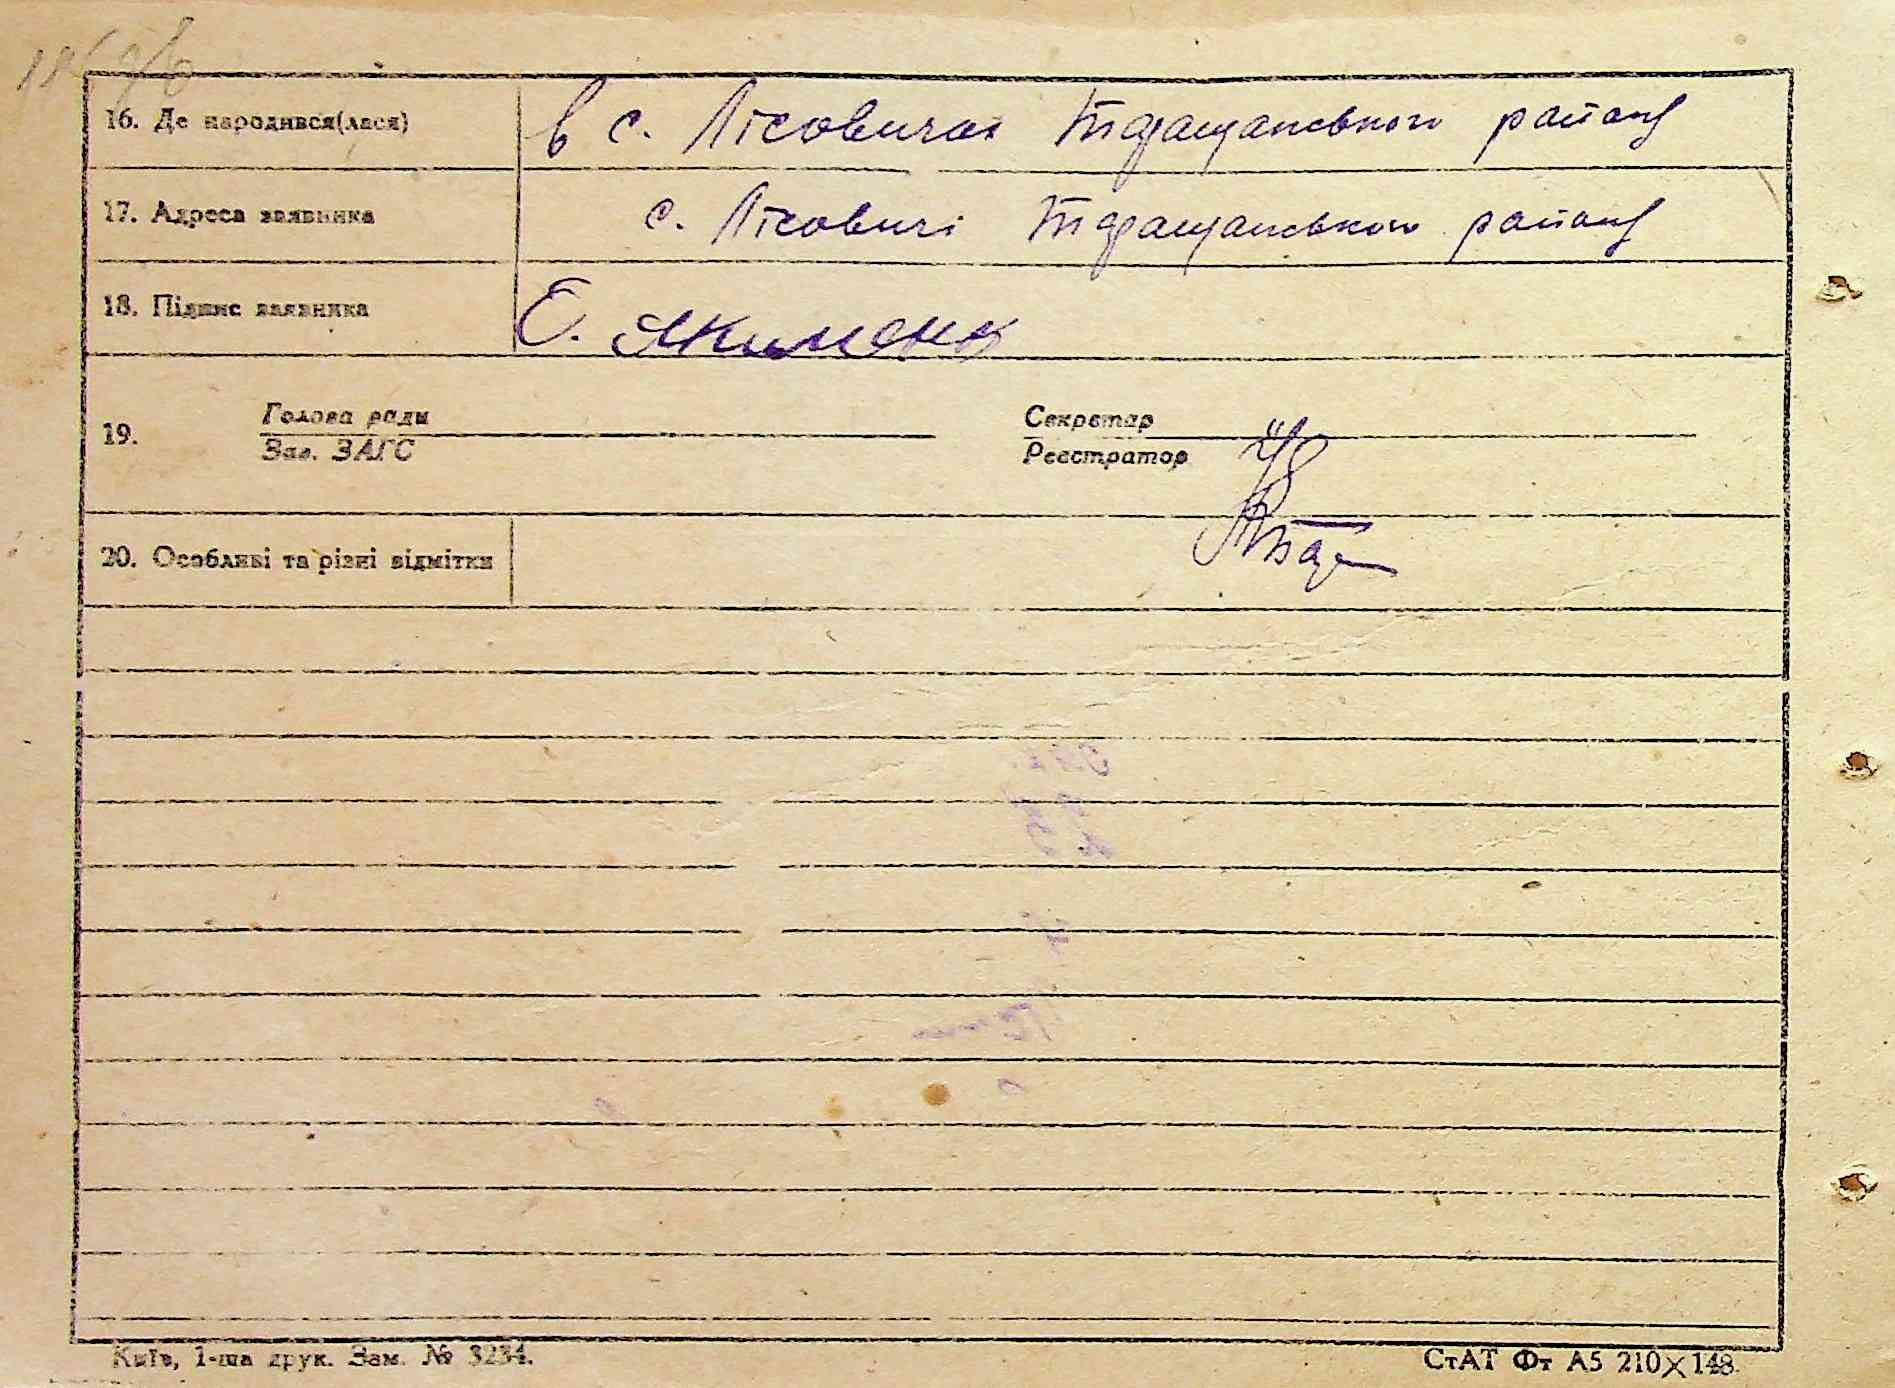 16. Де народився(лася) в с. Лісовичах Таращанського району
17. Адреса заявника с. Лісовичі Таращанського району
18. Підпис заявника Є. Якименк
19. Голова ради Секретар
Зав. ЗАГС Реєстратор
20. Особливі та різні відмітки
Київ, 1-ша друк. Зам. № 3234. СтАТ Фт А5 210×148